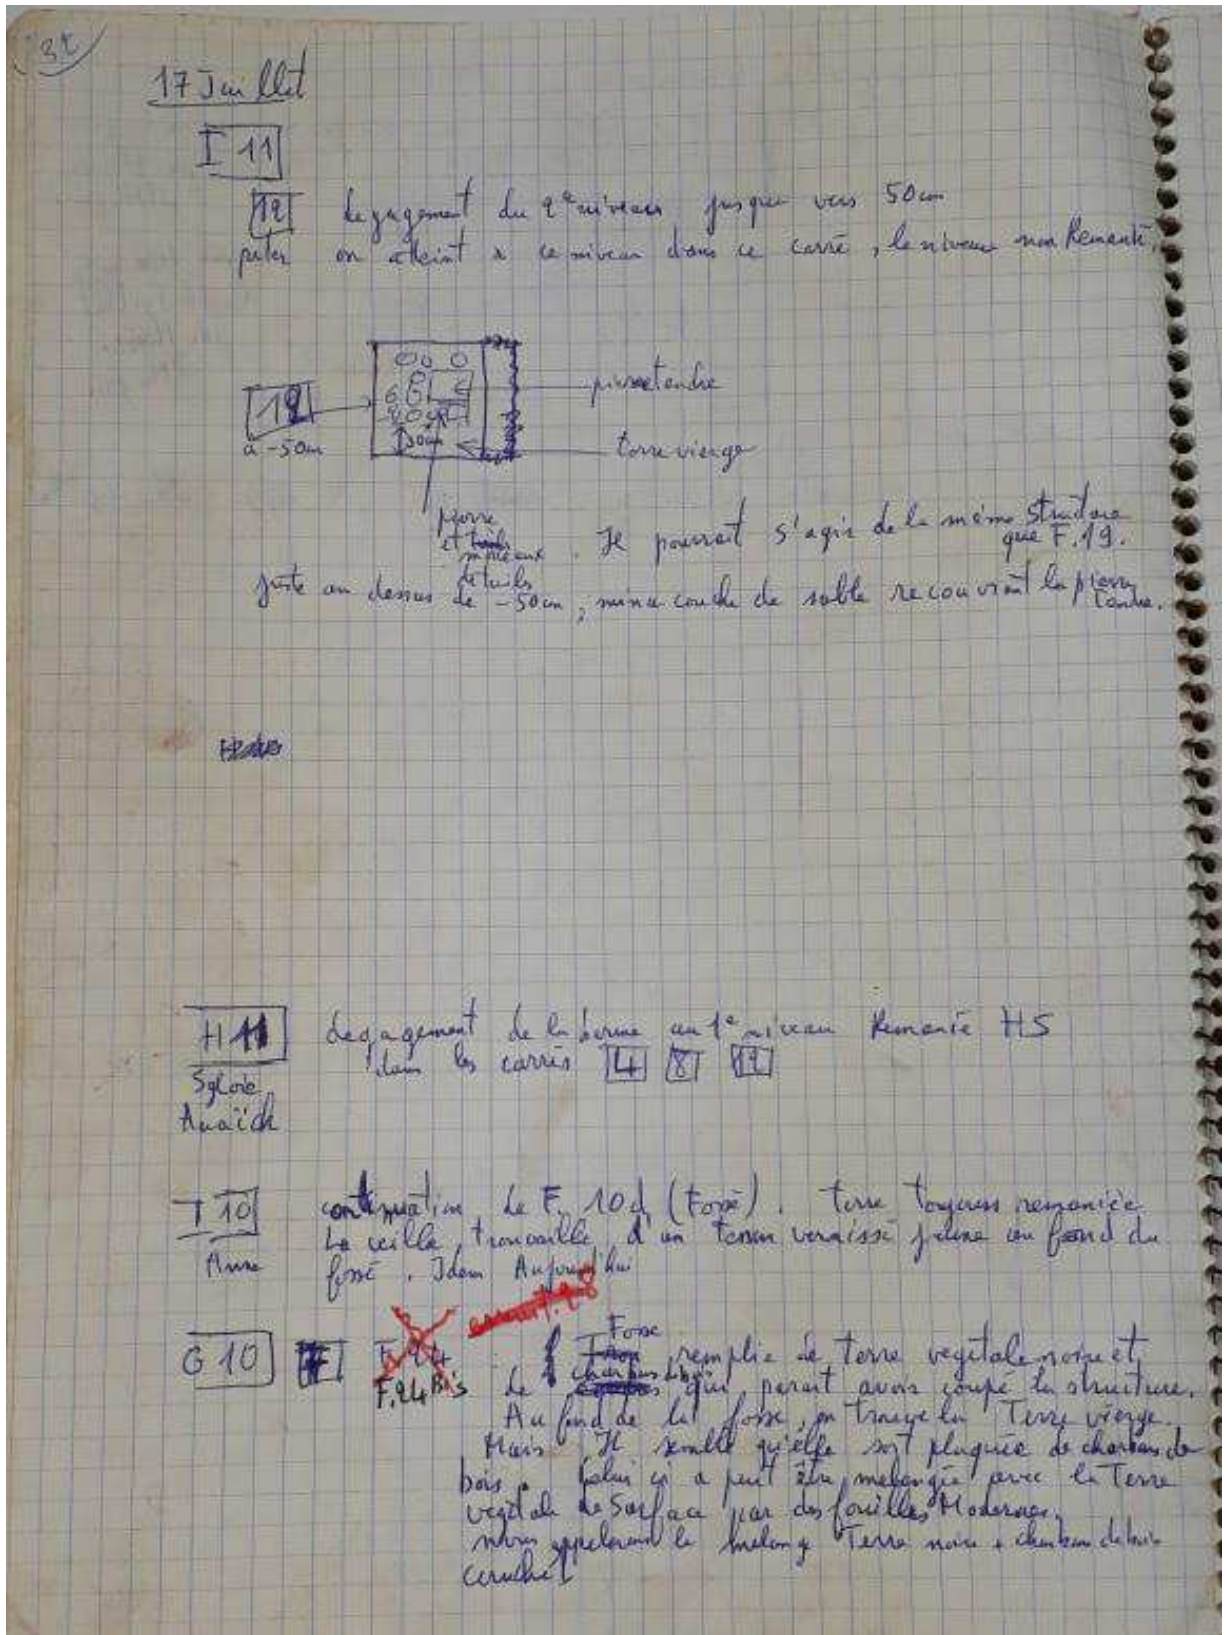 32
17 Juillet
I 11
12 degagement du 2e niveau jusque vers 50 cm
on atteint à ce niveau dans ce carré, le niveau non Remanié.
pierre tendre
12
à -50cm
30cm
terre vierge
pierre
et morceaux
de tuiles
. Il pourrait s'agir de la même structure
que F.19.
juste au dessus de -50cm, mince couche de sable recouvrant la pierre
tendre.
H 11 degagement de la berme au 1e niveau Remanié HS
dans les carrés 4 8 12
Sylvie
Anaïck
I 10 continuation de F. 10d (Fossé). terre toujours remaniée
La veille, trouvaille d'un tesson vernissé jaune au fond du
Anne fossé. Idem Aujourd'hui
G 10 F.24
F.24 Bis
Fosse remplie de terre vegetale noire et
de charbon de bois qui parait avoir coupé la structure.
Au fond de la fosse, on trouve la Terre vierge.
Mais Il semble qu'elle soit plaquée de charbon de
bois. Celui ci a peut être melangé avec la Terre
vegetale de Surface par des fouilles Modernes.
nous appelerons le melange Terre noire + charbon de bois